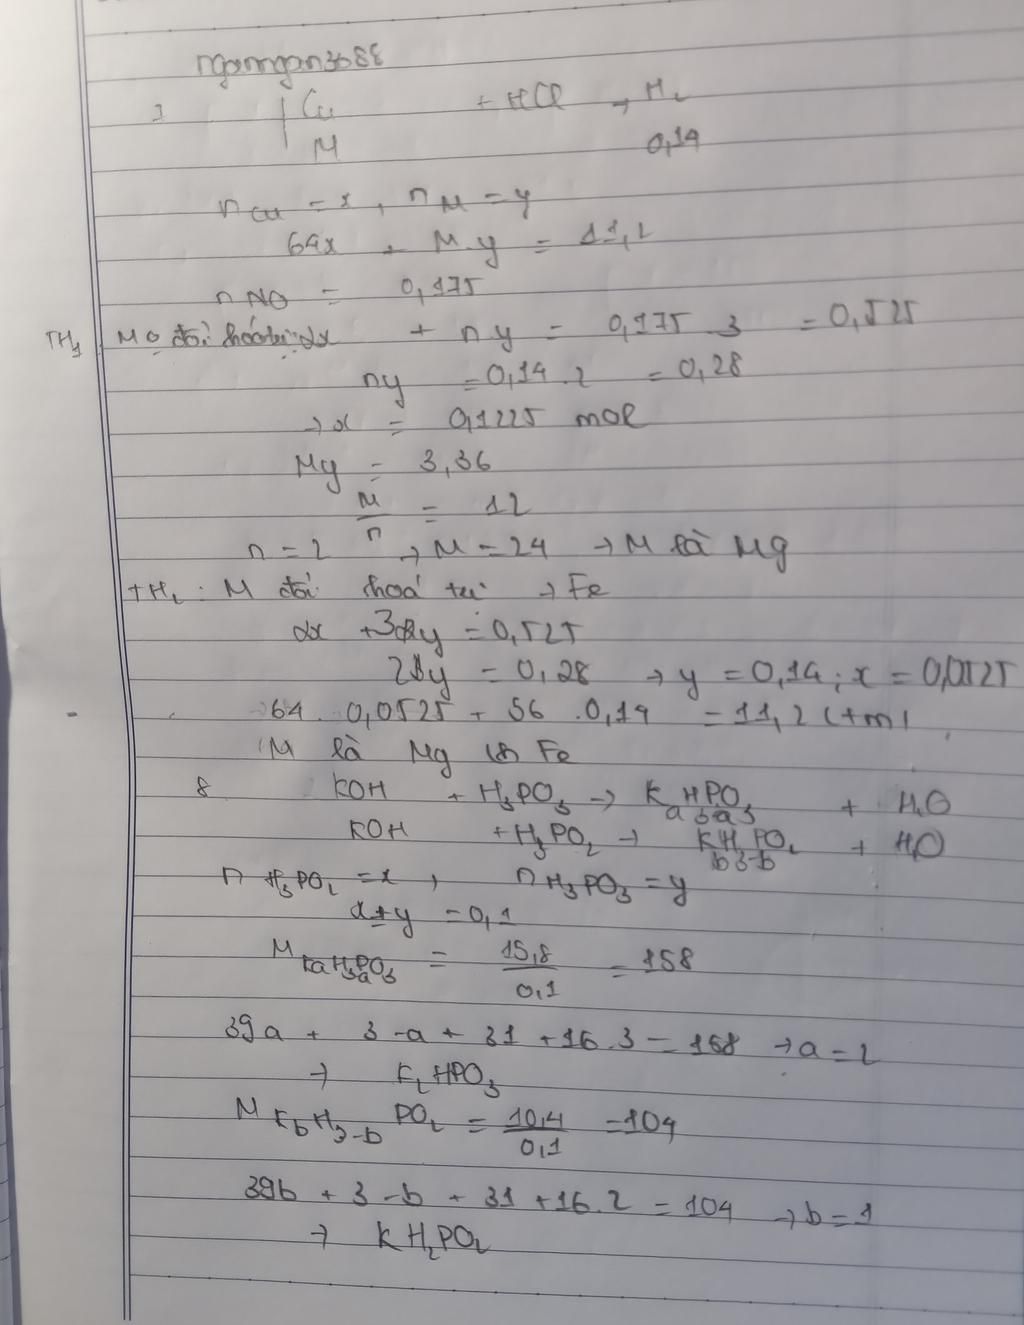 nganngan3688
Cu + HCl → H₂
M 0,14
n Cu = x, n M = y
64x + M y = 11,2
n NO = 0,175
TH₁ M 0 đổi hoá trị: 2x + ny = 0,175 . 3 = 0,525
ny = 0,14 . 2 = 0,28
→ x = 0,1225 mol
My = 3,36
M/n = 12
n = 2 → M = 24 → M là Mg
+H₂ : M đổi hoá trị → Fe
2x + 3y = 0,525
2y = 0,28 → y = 0,14 ; x = 0,0525
64 . 0,0525 + 56 . 0,14 = 11,2 (tm)
M là Mg Fe
8 KOH + H₃PO₃ → KₐH₃₋ₐPO₃ + H₂O
KOH + H₃PO₂ → K_bH₃₋_bPO₂ + H₂O
n H₃PO₂ = x , n H₃PO₃ = y
x + y = 0,1
M KₐH₃₋ₐPO₃ = 15,8/0,1 = 158
39a + 3 - a + 31 + 16.3 = 158 → a = 2
→ K₂HPO₃
M K_bH₃₋_b PO₂ = 10,4/0,1 = 104
39b + 3 - b + 31 + 16.2 = 104 → b = 1
→ KH₂PO₂